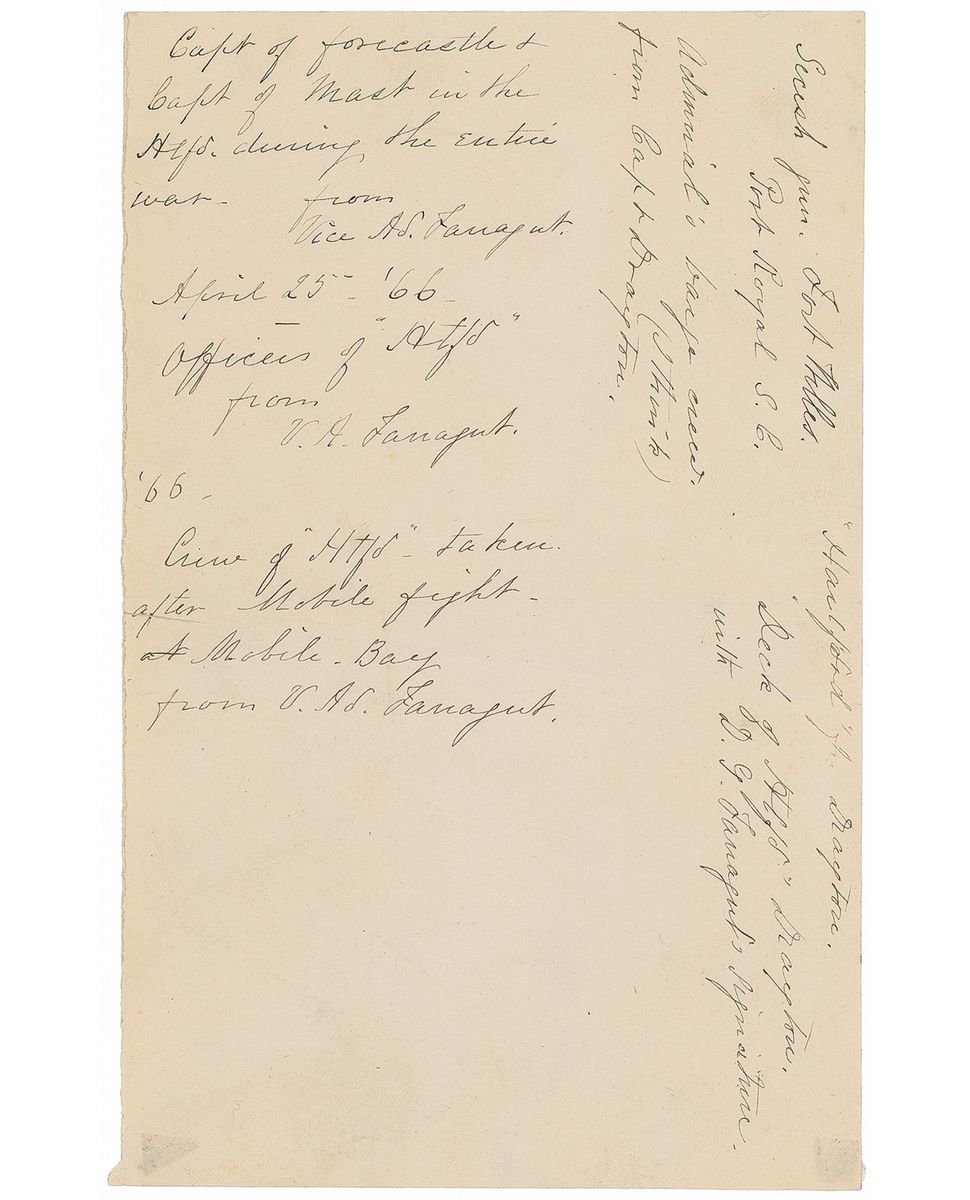 Capt of forecastle &
Capt of Mast in the
Htfd. during the entire
war - from
Vice Ad. Farragut.
April 25 - '66 -
Officers of "Htfd"
from
V. A. Farragut.
'66 -
Crew of "Htfd" - taken
after Mobile fight -
at Mobile - Bay
from V. Ad. Farragut.
Secesh gun. Fort Welles.
Port Royal S. C.
Admiral's barge crew.
from Capt Drayton. (I think)
"Hartford" fr. Drayton.
Deck of "Htfd" Drayton.
with D. G. Farragut's signature.